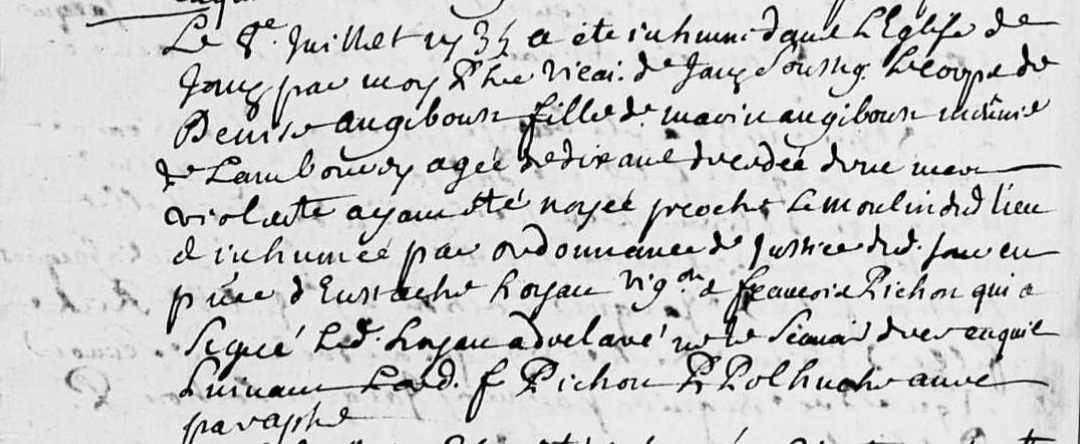 Le 8e. Juillet 1735 a été inhumé dans L'Eglise de
Jouy par moy Ptre vicai. de Jouy soussig. le corps de
Denise angiboust fille de marin angiboust
de agée de dix ans decedée d'une mort
violente ayant été noyée proche le moulin dud. lieu
et inhumée par ordonnance de Justice dud. Jour en
p'nce d'Eustache hoyau vig.on et françois Pichon qui a
signé led. hoyau a declaré ne le scavoir de ce enquis
suivant L'ord. f Pichon P avec
paraphe